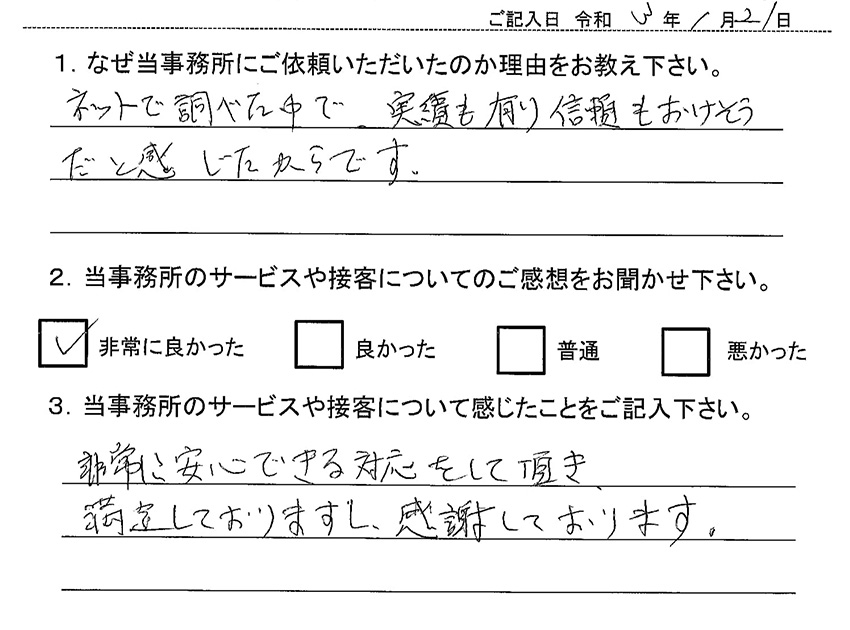 ご記入日 令和 3 年 1 月 21 日
1. なぜ当事務所にご依頼いただいたのか理由をお教え下さい。
ネットで調べた中で、実績も有り信頼もおけそう
だと感じたからです。
2. 当事務所のサービスや接客についてのご感想をお聞かせ下さい。
非常に良かった 良かった 普通 悪かった
3. 当事務所のサービスや接客について感じたことをご記入下さい。
非常に安心できる対応をして頂き、
満足しておりますし、感謝しております。